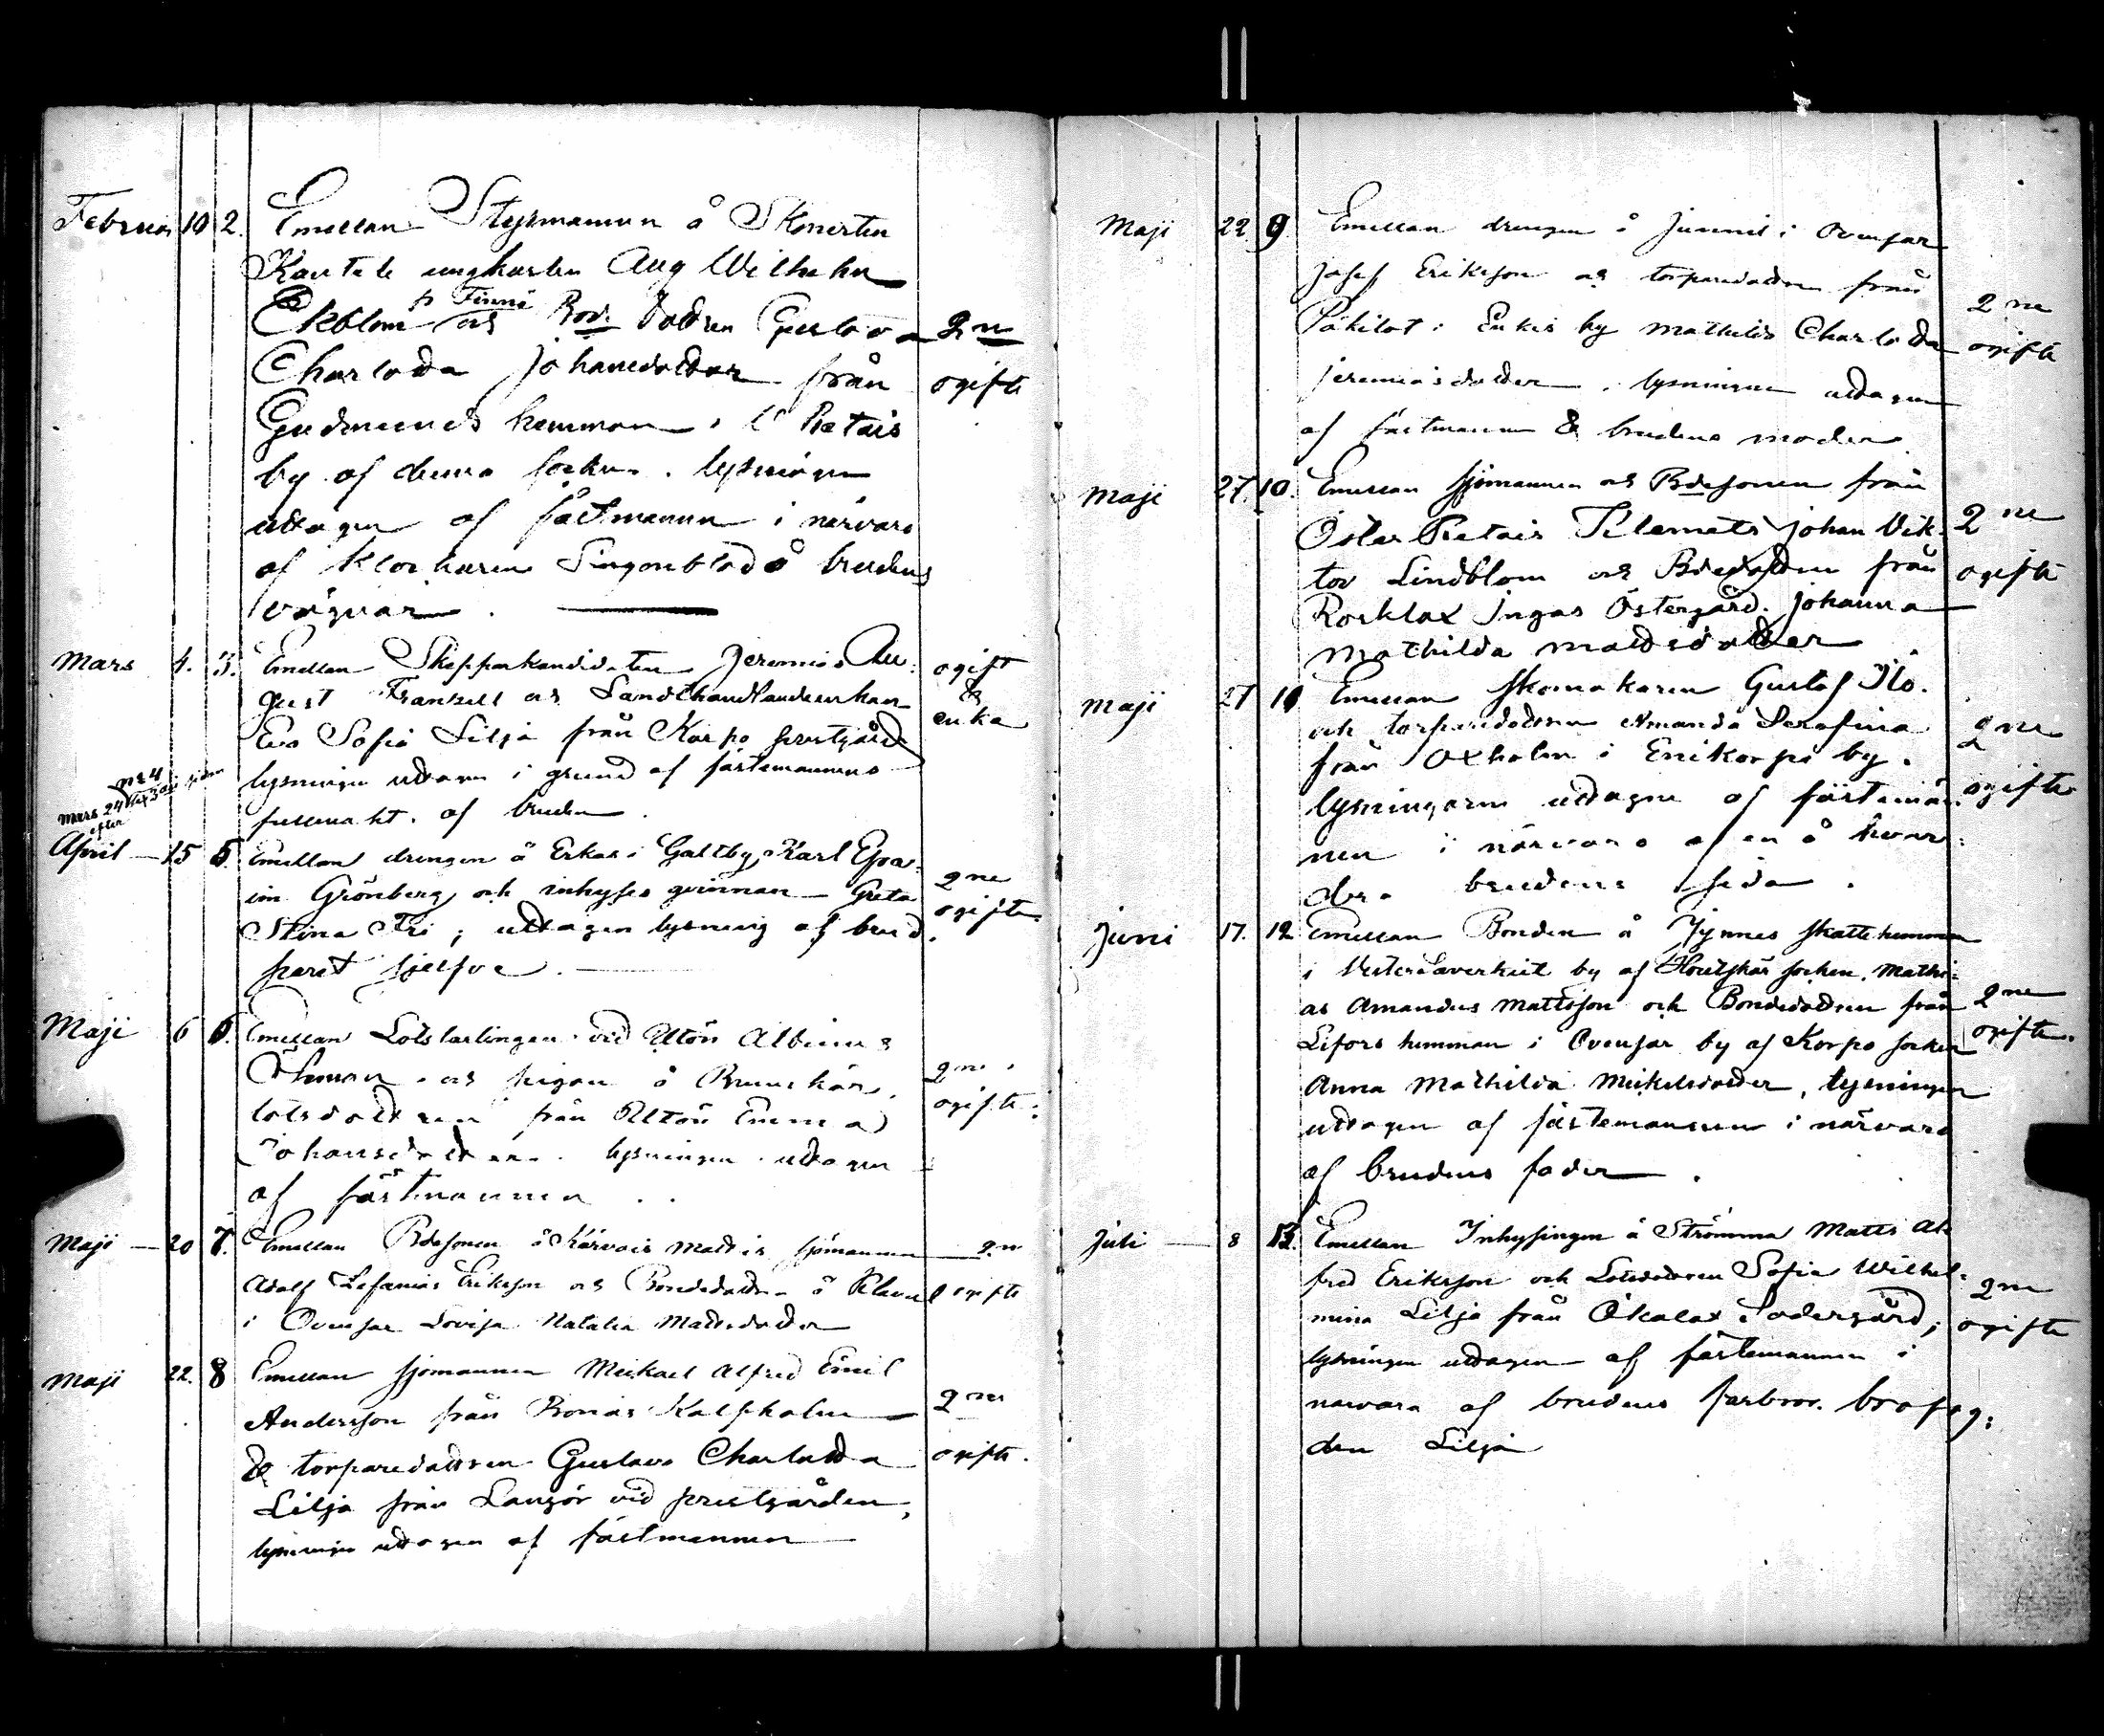 Februari 10 2. Emellan Styrmannen å Skonerten
Kantele ungkarlen Aug Wilhelm
Ekblom fr Finnö och Bond. dottren Gustava 2ne
Charlotta Johansdotter från ogifte
Gudmunds hemman i V Retais
by af denna socken. lysningen
uttagen af fästmannen i närvaro
af klockaren å brudens
vägnar.
Mars 4. 3. Emellan Skepparkandidaten Jeremias Au- ogift
gust Franzell och Landthandlandeenkan &
Eva Sofia Lilja från Korpo prestgård enka
lysningen uttagen i grund af fästemannens
fullmakt. af bruden.
nr 4
Mars 24
efter
April 15 5. Emellan drengen å Erkas i Galtby, Karl Efra-
im Grönberg och inhyses qvinnan Greta 2ne
Stina Fri; uttagen lysning af brud- ogifte
paret sjelfve.
Maji 6 6. Emellan Lotslärlingen vid Utön Albinus
Öhman och pigan å Brunskär, 2ne
lotsdottren från Utön Emma ogifte.
Johansdotter. lysningen uttagen
af fästmannen.
Maji 20 7. Emellan Bdesonen å Kärvais Mattis sjömannen 2ne
Adolf Zefanias Eriksson och Bondedottren å Klavus ogifte
i Ovensar Lovisa Natalia Mattsdotter
Maji 22. 8 Emellan sjömannen Mickael Alfred Emil
Andersson från Ronäs Kalfholm 2ne
& torparedottren Gustava Charlotta ogifte.
Lilja från Langör vid prestgården,
lysningen uttagen af fästmannen
Maji 22 9 Emellan drengen å Junnil i Ovensar
Josef Eriksson och torparedottren från 2ne
i Enkis by Mathilda Charlotta ogifte
Jeremiasdotter. lysningen uttagen
af fästmannen & brudens moder.
Maji 27. 10. Emellan sjömannen och Bdesonen från
Öster Retais Klemets Johan Vik- 2ne
tor Lindblom och Bdedottren från ogifte
Rosklax Ingas Östergård. Johanna
Mathilda Mattsdotter.
Maji 27 11 Emellan skomakaren Gustaf Ilo.
och torparedottren Amanda Serafina 2ne
från Oxholm i Enikorpo by. ogifte
lysningarne uttagne af fästeman-
nen i närvaro af en å hvar-
dera brudens sida.
Juni 17. 12 Emellan Bonden å Jynnes skattehemman
i Westersaverkeit by af Houtskär socken. Mathi-
as Amandus Mattsson och Bondedottren från 2ne
Lifors hemman i Ovensar by af Korpo socken ogifte.
Anna Mathilda Mickelsdotter, lysningen
uttagen af fästemannen i närvaro
af brudens fader.
Juli 8 13. Emellan Inhysingen å Strömma Matts Al-
fred Eriksson och Lotsdottren Sofia Wilhel- 2ne
mina Lilja från Åkalax Södergård; ogifte
lysningen uttagen af fästemannen i
närvara af brudens farbror. brofog-
den Lilja